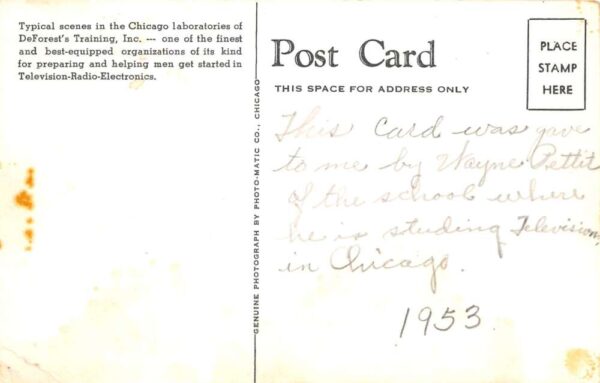 Typical scenes in the Chicago laboratories of
DeForest's Training, Inc. --- one of the finest
and best-equipped organizations of its kind
for preparing and helping men get started in
Television-Radio-Electronics.
GENUINE PHOTOGRAPH BY PHOTO-MATIC CO., CHICAGO
Post Card
THIS SPACE FOR ADDRESS ONLY
PLACE
STAMP
HERE
This card was gave
to me by Wayne Pettit
of the school where
he is studing Television
in Chicago.
1953